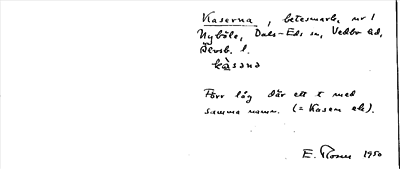 Kaserna, betesmark, nr 1
Nyböle, Dals-Eds sn, Vedbo hd,
Älvsb. l.
kàsəɳa
Förr låg där ett t med
samma namn. (= Kasen ek).
E. Rosen 1950